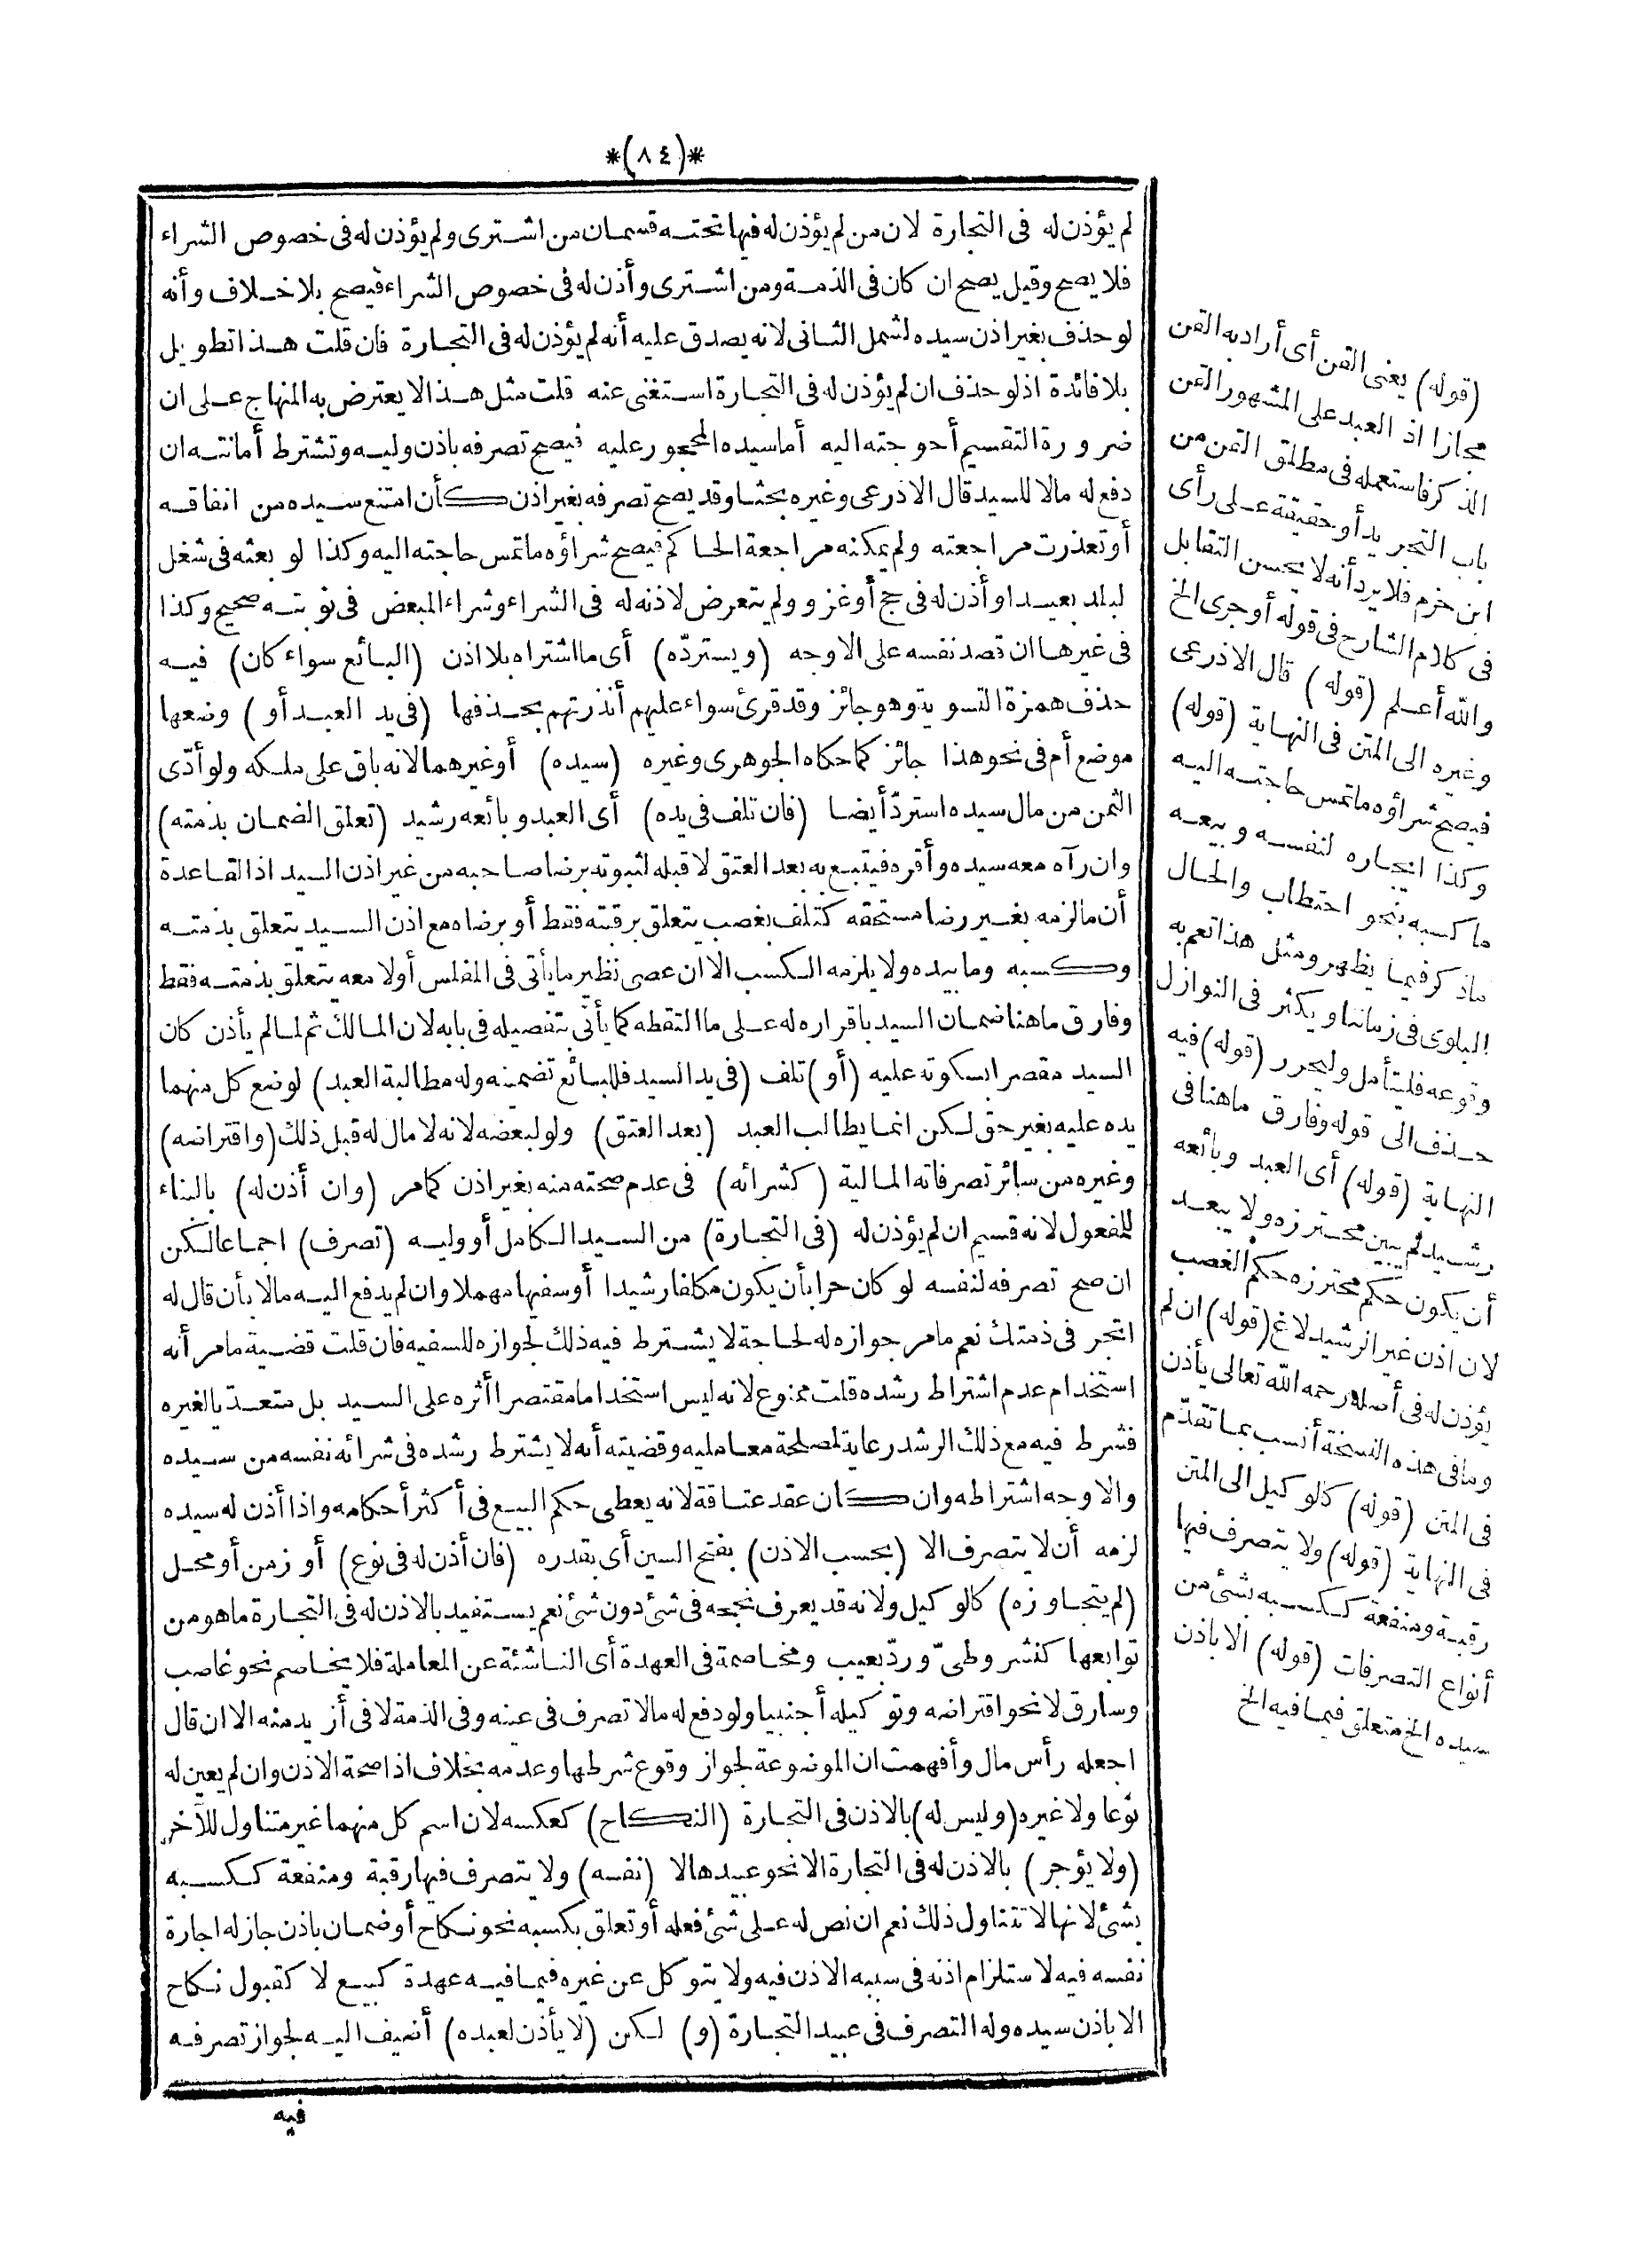 *(٨٤)*
لم يؤذن له فى التجارة لان من لم يؤذن له فيها تحته قسمان من اشترى ولم يؤذن له فى خصوص الشراء
فلا يصح وقيل يصح ان كان فى الذمة ومن اشترى وأذن له فى خصوص الشراء فيصح بلا خلاف وأنه
لو حذف بغير اذن سيده لشمل الثانى لانه يصدق عليه أنه لم يؤذن له فى التجارة فان قلت هذا تطويل
بلا فائدة اذ لو حذف ان لم يؤذن له فى التجارة استغنى عنه قلت مثل هذا لا يعترض به المنهاج على ان
ضرورة التقسيم أحوجته اليه أما سيده المحجور عليه فيصح تصرفه باذن وليه وتشترط أمانته ان
دفع له مالا للسيد قال الاذرعى وغيره بحثا وقد يصح تصرفه بغير اذن كأن امتنع سيده من انفاقه
أو تعذرت مراجعته ولم يمكنه مراجعة الحاكم فيصح شراؤه ما تمس حاجته اليه وكذا لو بعثه فى شغل
لبلد بعيد او أذن له فى حج أو غزو ولم يتعرض لاذنه له فى الشراء وشراء المبعض فى نوبته صحيح وكذا
فى غيرها ان قصد نفسه على الاوجه (ويستردّه) أى ما اشتراه بلا اذن (البائع سواء كان) فيه
حذف همزة التسوية وهو جائز وقد قرئ سواء عليهم أنذرتهم بحذفها (فى يد العبد أو) وضعها
موضع أم فى نحو هذا جائز كما حكاه الجوهرى وغيره (سيده) أو غيرهما لانه باق على ملكه ولو أدّى
الثمن من مال سيده استردّ أيضا (فان تلف فى يده) أى العبد وبائعه رشيد (تعلق الضمان بذمته)
وان رآه معه سيده وأقره فيتبع به بعد العتق لا قبله لثبوته برضا صاحبه من غير اذن السيد اذ القاعدة
أن ما لزمه بغير رضا مستحقه كتلف بغصب يتعلق برقبته فقط أو برضاه مع اذن السيد يتعلق بذمته
وكسبه وما بيده ولا يلزمه الكسب الا ان عصى نظير ما يأتى فى المفلس أولا معه يتعلق بذمته فقط
وفارق ما هنا ضمان السيد باقراره له على ما التقطه كما يأتى بتفصيله فى بابه لان المالك ثم لما لم يأذن كان
السيد مقصرا بسكوته عليه (أو) تلف (فى يد السيد فللبائع تضمينه وله مطالبة العبد) لوضع كل منهما
يده عليه بغير حق لكن انما يطالب العبد (بعد العتق) ولو لبعضه لانه لا مال له قبل ذلك (واقتراضه)
وغيره من سائر تصرفاته المالية (كشرائه) فى عدم صحته منه بغير اذن كما مر (وان أذن له) بالبناء
للمفعول لانه قسيم ان لم يؤذن له (فى التجارة) من السيد الكامل أو وليه (تصرف) اجماعا لكن
ان صح تصرفه لنفسه لو كان حرا بأن يكون مكلفا رشيدا أو سفيها مهملا وان لم يدفع اليه مالا بأن قال له
اتجر فى ذمتك نعم ما مر جوازه له لحاجة لا يشترط فيه ذلك لجوازه للسفيه فان قلت قضية ما مر أنه
استخدام عدم اشتراط رشده قلت ممنوع لانه ليس استخداما مقتصرا أثره على السيد بل متعديا لغيره
فشرط فيه مع ذلك الرشد رعاية لمصلحة معامليه وقضيته أنه لا يشترط رشده فى شرائه نفسه من سيده
والاوجه اشتراطه وان كان عقد عتاقة لانه يعطى حكم البيع فى أكثر أحكامه واذا أذن له سيده
لزمه أن لا يتصرف الا (بحسب الاذن) بفتح السين أى بقدره (فان أذن له فى نوع) أو زمن أو محل
(لم يتجاوزه) كالوكيل ولانه قد يعرف نجحه فى شئ دون شئ نعم يستفيد بالاذن له فى التجارة ما هو من
توابعها كنشر وطىّ وردّ بعيب ومخاصمة فى العهدة أى الناشئة عن المعاملة فلا يخاصم نحو غاصب
وسارق لا نحو اقتراضه وتوكيله أجنبيا ولو دفع له مالا تصرف فى عينه وفى الذمة لا فى أزيد منه الا ان قال
اجعله رأس مال وأفهمت ان الموضوعة لجواز وقوع شرطها وعدمه بخلاف اذا صحة الاذن وان لم يعين له
نوعا ولا غيره (وليس له) بالاذن فى التجارة (النكاح) كعكسه لان اسم كل منهما غير متناول للآخر
(ولا يؤجر) بالاذن له فى التجارة الا نحو عبيدها لا (نفسه) ولا يتصرف فيها رقبة ومنفعة ككسبه
بشئ لانها لا تتناول ذلك نعم ان نص له على شئ فعله أو تعلق بكسبه نحو نكاح أو ضمان باذن جاز له اجارة
نفسه فيه لاستلزام اذنه فى سببه الاذن فيه ولا يتوكل عن غيره فيما فيه عهدة كبيع لا كقبول نكاح
الا باذن سيده وله التصرف فى عبيد التجارة (و) لكن (لا يأذن لعبده) أضيف اليه لجواز تصرفه
فيه
(قوله) يعنى القن أى أراد به القن
مجازا اذ العبد على المشهور القن
الذكر فاستعمله فى مطلق القن من
باب التجريد أو حقيقة على رأى
ابن حزم فلا يرد أنه لا يحسن التقابل
فى كلام الشارح فى قوله أو جرى الخ
والله أعلم (قوله) قال الاذرعى
وغيره الى المتن فى النهاية (قوله)
فيصح شراؤه ما تمس حاجته اليه
وكذا ايجاره لنفسه وبيعه
ما كسبه بنحو احتطاب والحال
ما ذكر فيما يظهر ومثل هذا تعم به
البلوى فى زماننا ويكثر فى النوازل
وقوعه فليتأمل وليحرر (قوله) فيه
حذف الى قوله وفارق ما هنا فى
النهاية (قوله) أى العبد وبائعه
رشيد لم يبين محترزه ولا يبعد
أن يكون حكم محترزه حكم الغصب
لان اذن غير الرشيد لاغ (قوله) ان لم
يؤذن له فى أصله رحمه الله تعالى يأذن
وما فى هذه النسخة أنسب بما تقدّم
فى المتن (قوله) كالوكيل الى المتن
فى النهاية (قوله) ولا يتصرف فيها
رقبة ومنفعة ككسبه بشئ من
أنواع التصرفات (قوله) الا باذن
سيده الخ متعلق فيما فيه الخ